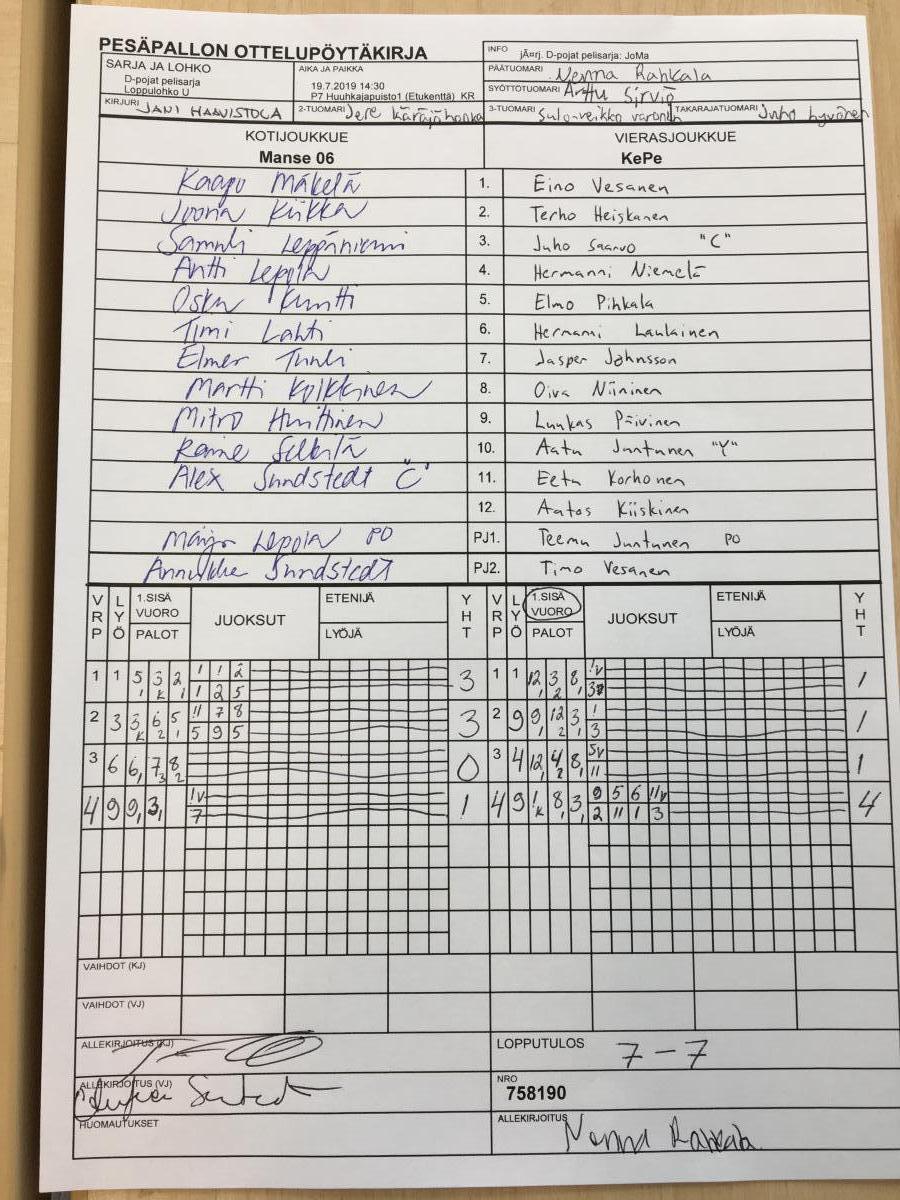 PESÄPALLON OTTELUPÖYTÄKIRJA
INFO jÄ¤rj. D-pojat pelisarja: JoMa
SARJA JA LOHKO
D-pojat pelisarja
Loppulohko U
AIKA JA PAIKKA
19.7.2019 14:30
P7 Huuhkajapuisto1 (Etukenttä) KR
PÄÄTUOMARI Nenna Rahkala
SYÖTTÖTUOMARI Arttu Sirviö
KIRJURI JANI HAAVISTOLA
2-TUOMARI Jere
3-TUOMARI Sulo-veikko varonen
TAKARAJATUOMARI Juho hyvönen
KOTIJOUKKUE VIERASJOUKKUE
Manse 06 KePe
Kaapo Mäkelä 1. Eino Vesanen
Joona Kiikka 2. Terho Heiskanen
Samuli Leppäniemi 3. Juho Saarvo "C"
Antti Leppola 4. Hermanni Niemelä
Osku 5. Elmo Pihkala
Timi Lahti 6. Hermanni Laulainen
Elmer Tuuli 7. Jasper Johnsson
Martti Kolkkinen 8. Oiva Niininen
Mitro Huittinen 9. Luukas Päivinen
Raine 10. Aatu Juntunen "Y"
Alex Sundstedt "C" 11. Eetu Korhonen
12. Aatos Kiiskinen
Leppola PO PJ1. Teemu Juntunen PO
Sundstedt PJ2. Timo Vesanen
VRP LYÖ 1.SISÄ VUORO PALOT JUOKSUT ETENIJÄ LYÖJÄ YHT VRP LYÖ 1.SISÄ VUORO PALOT JUOKSUT ETENIJÄ LYÖJÄ YHT
1 1 5 3 2 1 1 2 3 1 1 12 3 8 1v 1
1 K 1 1 2 5 1 2 1
2 3 3 6 5 11 7 8 3 2 9 9 12 3 1 1
K 2 1 5 9 5 1 2 1 3
3 6 6 7 8 0 3 4 12 4 8 5v 1
1 3 2 1 2 1 11
4 9 9 3 1v 1 4 9 1 8 3 9 5 6 11v 4
1 1 7 K 1 1 2 11 1 3
VAIHDOT (KJ)
VAIHDOT (VJ)
ALLEKIRJOITUS (KJ)
LOPPUTULOS 7-7
ALLEKIRJOITUS (VJ)
NRO
758190
HUOMAUTUKSET
ALLEKIRJOITUS Nenna Rahkala